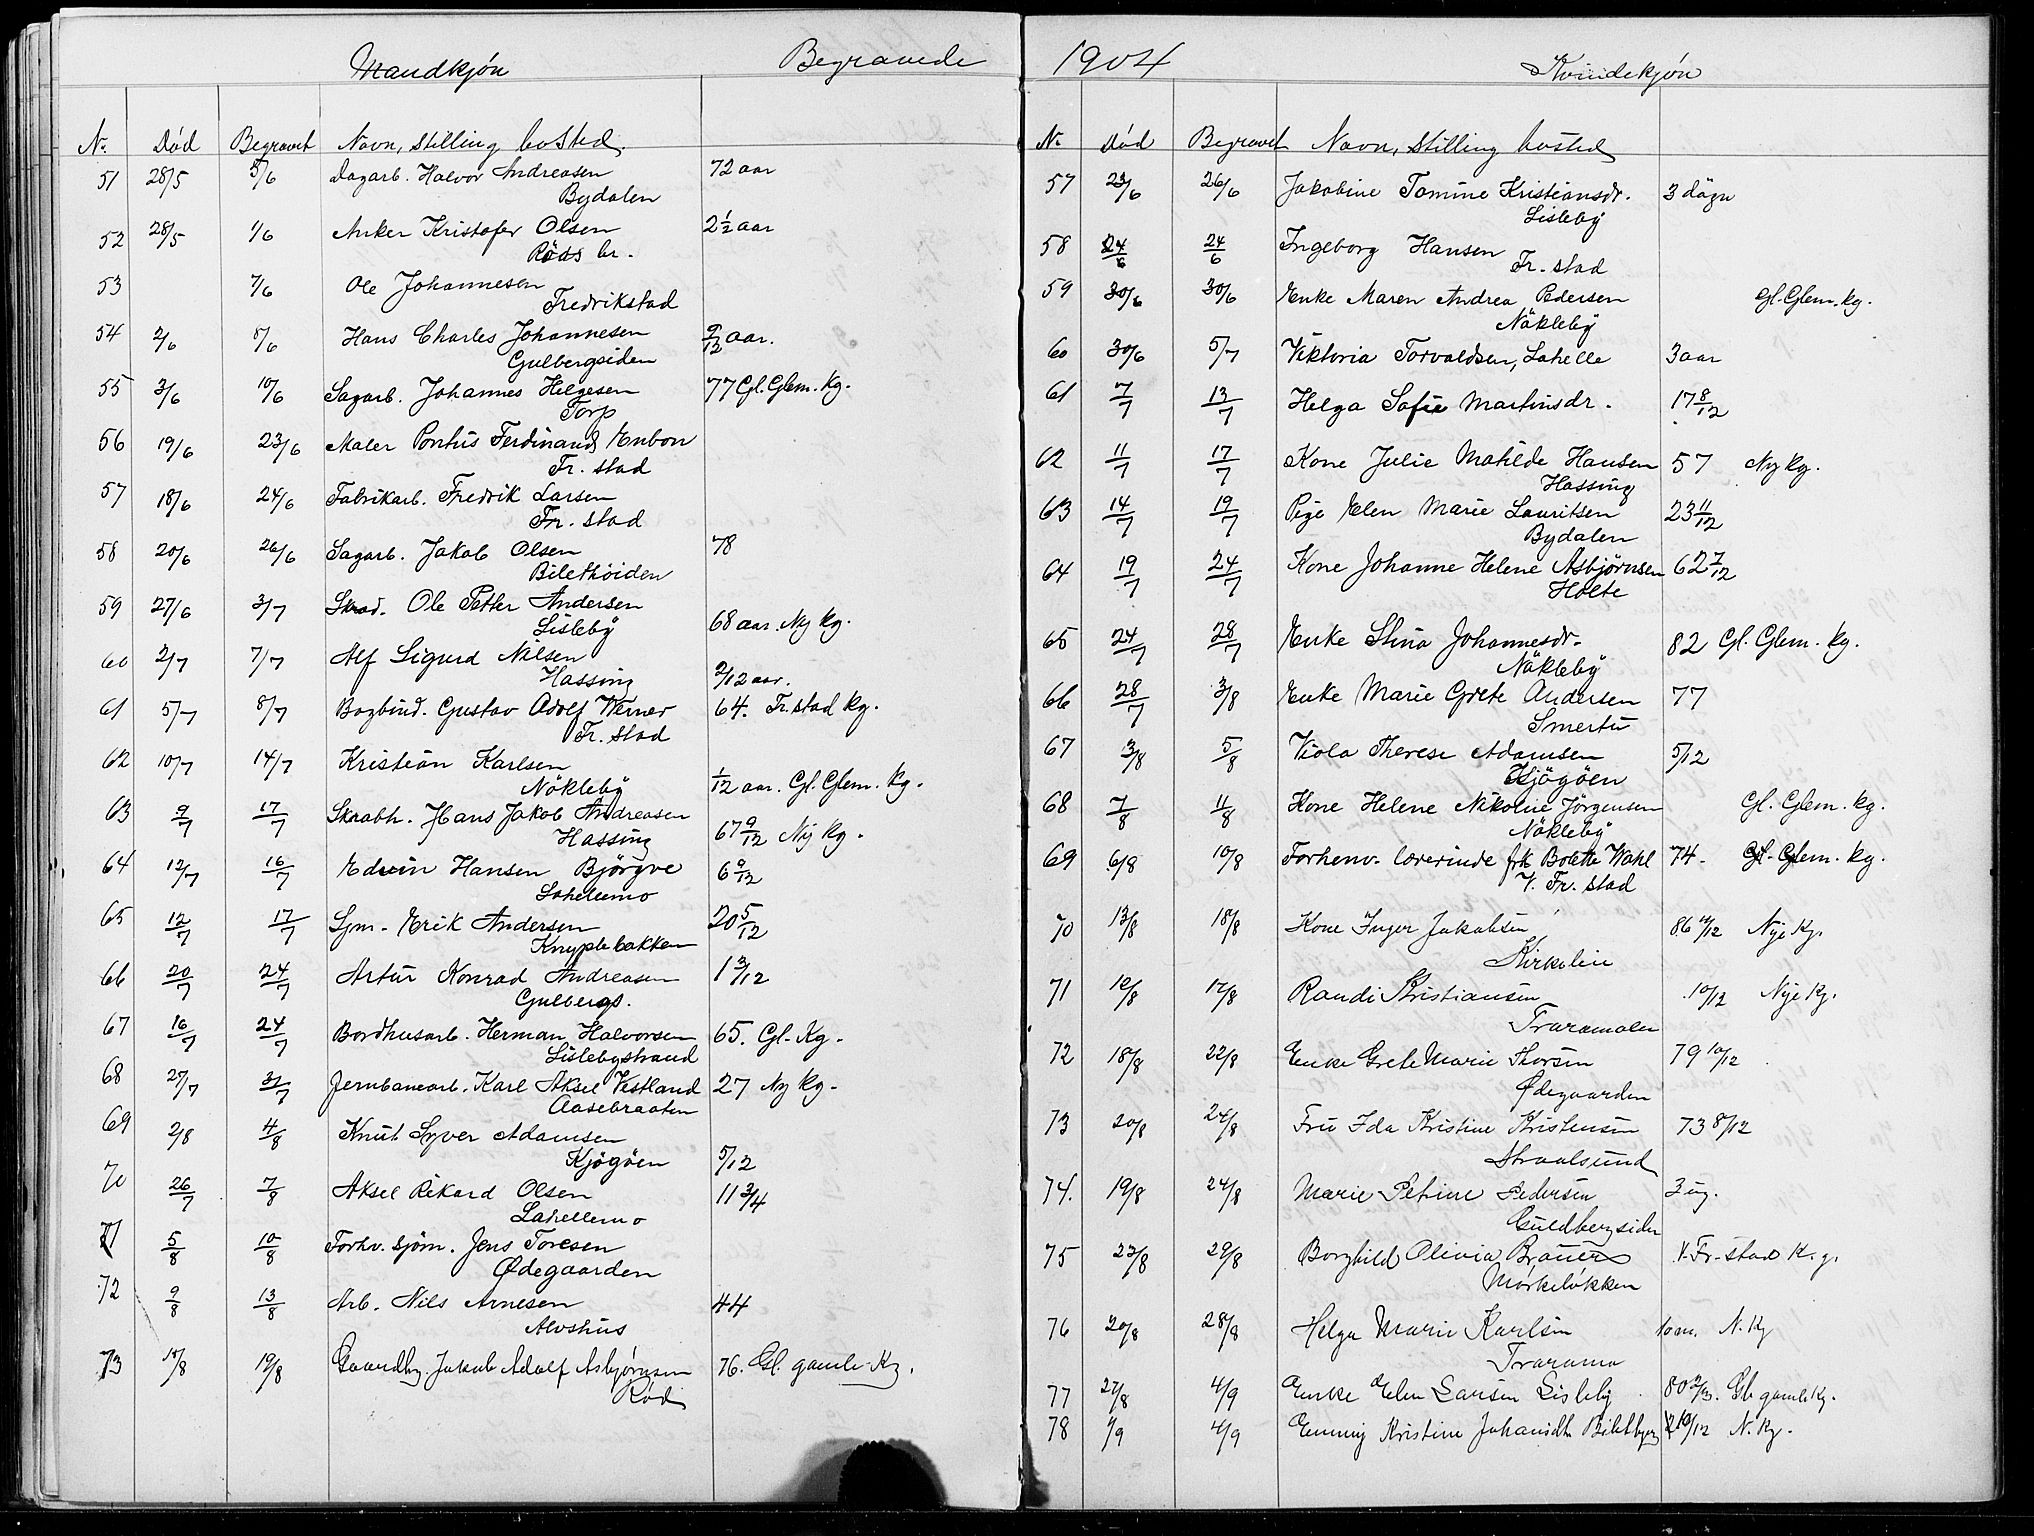 Mandkjøn Begravede
No. Død Begravet Navn, stilling bosted.
51 28/5 5/6 Dagarb. Halvor Andreasen 72 aar
Bydalen
52 28/5 1/6 Anker Kristofer Olsen 2½ aar
Røds br.
53 7/6 Ole Johannesen
Fredrikstad
54 2/6 8/6 Hans Charles Johannesen 9/12 aar.
Gulbergsiden
55 3/6 10/6 Sagarb. Johannes Helgesen 77 Gl. Glem. Kg.
Torp
56 19/6 23/6 Maler Pontus Ferdinand Enbon
Fr. stad
57 18/6 24/6 Fabrikarb. Fredrik Larsen
Fr. stad
58 20/6 26/6 Sagarb. Jakob Olsen 78
Bilethöiden
59 27/6 3/7 Skrad. Ole Petter Andersen
Lisleby 68 aar. Ny Kg.
60 2/7 7/7 Alf Sigurd Nilsen
Hassing 2/12 aar.
61 5/7 8/7 Bogbind. Gustav Adolf Werner 64. Fr. stad Kg.
Fr. stad
62 10/7 14/7 Kristian Karlsen
Nökleby 1/12 aar. Gl. Glem. Kg.
63 9/7 17/7 Skrabh. Hans Jakob Andreasen
Hassing 67 9/12 Ny Kg.
64 12/7 16/7 Edvin Hansen Björgve 6 9/12
Lahelemo
65 12/7 17/7 Sjm. Erik Andersen 20 5/12
Knyplebakken
66 20/7 24/7 Artur Konrad Andreasen 1 3/12
Gulbergs.
67 16/7 24/7 Bordhusarb. Herman Halvorsen 65. Gl. Kg.
Lislebystrand
68 27/7 31/7 Jernbanearb. Karl Aksel Vestland 27 Ny Kg.
Aasebraaten
69 2/8 4/8 Knut Syver Adamsen
Kjögöen 5/12
70 26/7 7/8 Aksel Rikard Olsen 11 3/4
Lahellemo
71 5/8 10/8 Forhv. sjöm. Jens Toresen
Ødegaarden
72 9/8 13/8 Arb. Nils Arnesen 44
Alvshus
73 15/8 19/8 Gaardbr. Jakob Adolf Asbjørnsen 76. Gl. gamle Kg.
Rød
1904 Kvindekjøn
No. Død Begravet Navn, stilling bosted
57 23/6 26/6 Jakobine Tomine Kristiansdr. 3 dägn
Lisleby
58 24/6 24/6 Ingeborg Hansen
Fr. stad
59 30/6 30/6 Enke Maren Andrea Pedersen Gl. Glem. Kg.
Näkleby
60 30/6 5/7 Viktoria Torvaldsen, Lahelle 3 aar
61 7/7 13/7 Helga Sofie Martinsdr. 17 8/12
62 11/7 17/7 Kone Julie Matilde Hansen 57 Ny Kg.
Hassing
63 14/7 19/7 Pige Elen Marie Lauritsen 23 11/12
Bydalen
64 19/7 24/7 Kone Johanne Helene Asbjørnsen 62 7/12
Holte
65 24/7 28/7 Enke Stina Johannesdr. 82 Gl. Glem. Kg.
Näkleby
66 28/7 3/8 Enke Marie Grete Andersen 77
Smertu
67 3/8 5/8 Viola Therese Adamsen 5/12
Kjögöen
68 7/8 11/8 Kone Helene Nikoline Jörgensen Gl. Glem. Kg.
Näkleby
69 6/8 10/8 Forhenv. lærerinde frk Bolette Wahl 74. Gl. Glem. Kg.
V. Fr. stad
70 13/8 18/8 Kone Inger Jakobsen 86 10/12 Nye Kg.
Kirkelien
71 12/8 17/8 Randi Kristiansen 10/12 Nye Kg.
Traramalen
72 18/8 22/8 Enke Grete Marie Thorsen 79 10/12
Ødegaarden
73 20/8 24/8 Fru Ida Kristine Kristensen 73 8/12
Straalsund
74. 19/8 24/8 Marie Petrine Pedersen 3 ug.
Guldbergsiden
75 23/8 29/8 Borghild Olivia Brauer V. Fr. stad K.g.
Mørkeløkken
76 20/8 28/8 Helga Marie Karlsen 10 m. N. Kg
Trarama
77 27/8 4/9 Enke Elen Larsen Lisleby 80 2/3. Gl. gamle Kg.
78 1/9 4/9 Emmy Kristine Johansdtr. 10/12 N. Kg.